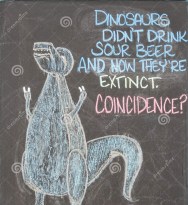 DINOSAURS
DIDN'T DRINK
SOUR BEER
AND NOW THEY'RE
EXTINCT.
COINCIDENCE?